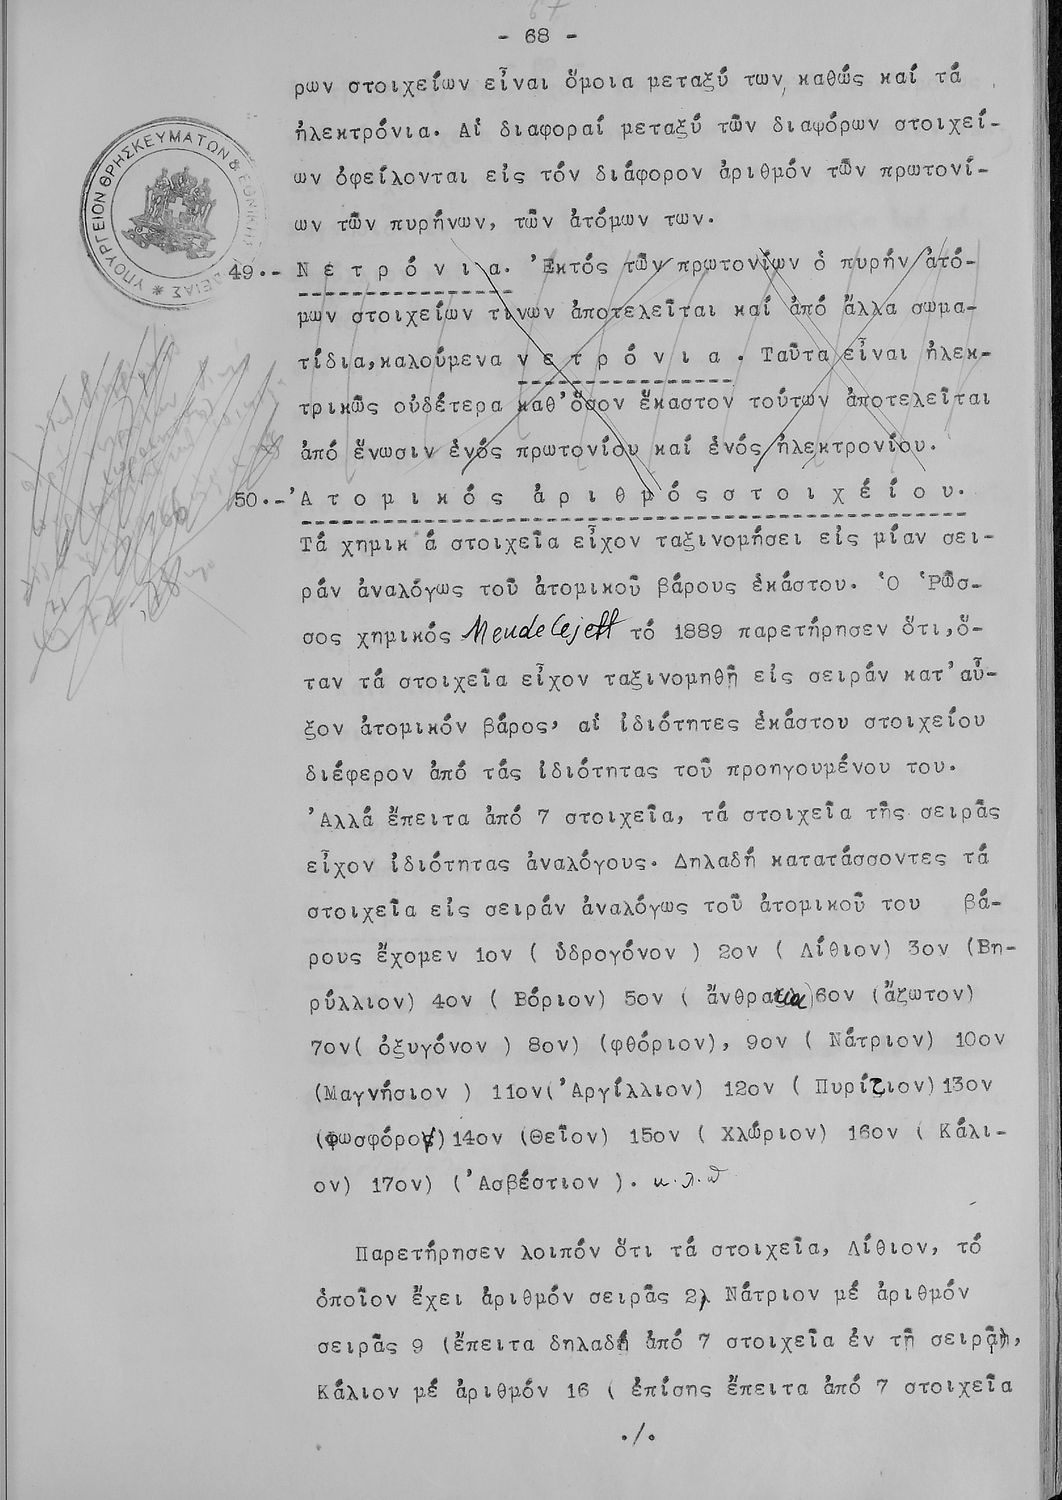 67
- 68 -
ρων στοιχείων εἶναι ὅμοια μεταξύ των, καθώς καί τά
ἠλεκτρόνια. Αἱ διαφοραί μεταξύ τῶν διαφόρων στοιχεί-
ων ὀφείλονται εἰς τόν διάφορον ἀριθμόν τῶν πρωτονί-
ων τῶν πυρήνων, τῶν ἀτόμων των.
ΥΠΟΥΡΓΕΙΟΝ ΘΡΗΣΚΕΥΜΑΤΩΝ & ΕΘΝΙΚΗΣ ΠΑΙΔΕΙΑΣ
49.- Ν ε τ ρ ό ν ι α. Ἐκτός τῶν πρωτονίων ὁ πυρήν ἀτό-
μων στοιχείων τινων ἀποτελεῖται καί ἀπό ἄλλα σωμα-
τίδια,καλούμενα ν ε τ ρ ό ν ι α . Ταῦτα εἶναι ἠλεκ-
τρικῶς οὐδέτερα καθ'ὅσον ἕκαστον τούτων ἀποτελεῖται
ἀπό ἕνωσιν ἑνός πρωτονίου καί ἑνός ἠλεκτρονίου.
50.-Ἀ τ ο μ ι κ ό ς ἀ ρ ι θ μ ό ς σ τ ο ι χ ε ί ο υ.
Τά χημικ ά στοιχεῖα εἶχον ταξινομήσει εἰς μίαν σει-
ράν ἀναλόγως τοῦ ἀτομικοῦ βάρους ἑκάστου. Ὁ Ῥῶσ-
σος χημικός Mendelejeff τό 1889 παρετήρησεν ὅτι,ὅ-
ταν τά στοιχεῖα εἶχον ταξινομηθῆ εἰς σειράν κατ'αὖ-
ξον ἀτομικόν βάρος, αἱ ἰδιότητες ἑκάστου στοιχείου
διέφερον ἀπό τάς ἰδιότητας τοῦ προηγουμένου του.
Ἀλλά ἔπειτα ἀπό 7 στοιχεῖα, τά στοιχεῖα τῆς σειρᾶς
εἶχον ἰδιότητας ἀναλόγους. Δηλαδή κατατάσσοντες τά
στοιχεῖα εἰς σειράν ἀναλόγως τοῦ ἀτομικοῦ του βά-
ρους ἔχομεν 1ον ( ὑδρογόνον ) 2ον ( Λίθιον) 3ον (Βη-
ρύλλιον) 4ον ( Βόριον) 5ον ( ἄνθρακα) 6ον (ἄζωτον)
7ον( ὀξυγόνον ) 8ον) (φθόριον), 9ον ( Νάτριον) 10ον
(Μαγνήσιον ) 11ον(Ἀργίλλιον) 12ον ( Πυρίτιον) 13ον
(Φωσφόρος) 14ον (Θεῖον) 15ον ( Χλώριον) 16ον ( Κάλι-
ον) 17ον) (Ἀσβέστιον ). κ.λ.π
Παρετήρησεν λοιπόν ὅτι τά στοιχεῖα, Λίθιον, τό
ὁποῖον ἔχει ἀριθμόν σειρᾶς 2, Νάτριον μέ ἀριθμόν
σειρᾶς 9 (ἔπειτα δηλαδή ἀπό 7 στοιχεῖα ἐν τῆ σειρᾷ),
Κάλιον μέ ἀριθμόν 16 ( ἐπίσης ἔπειτα ἀπό 7 στοιχεῖα
./.